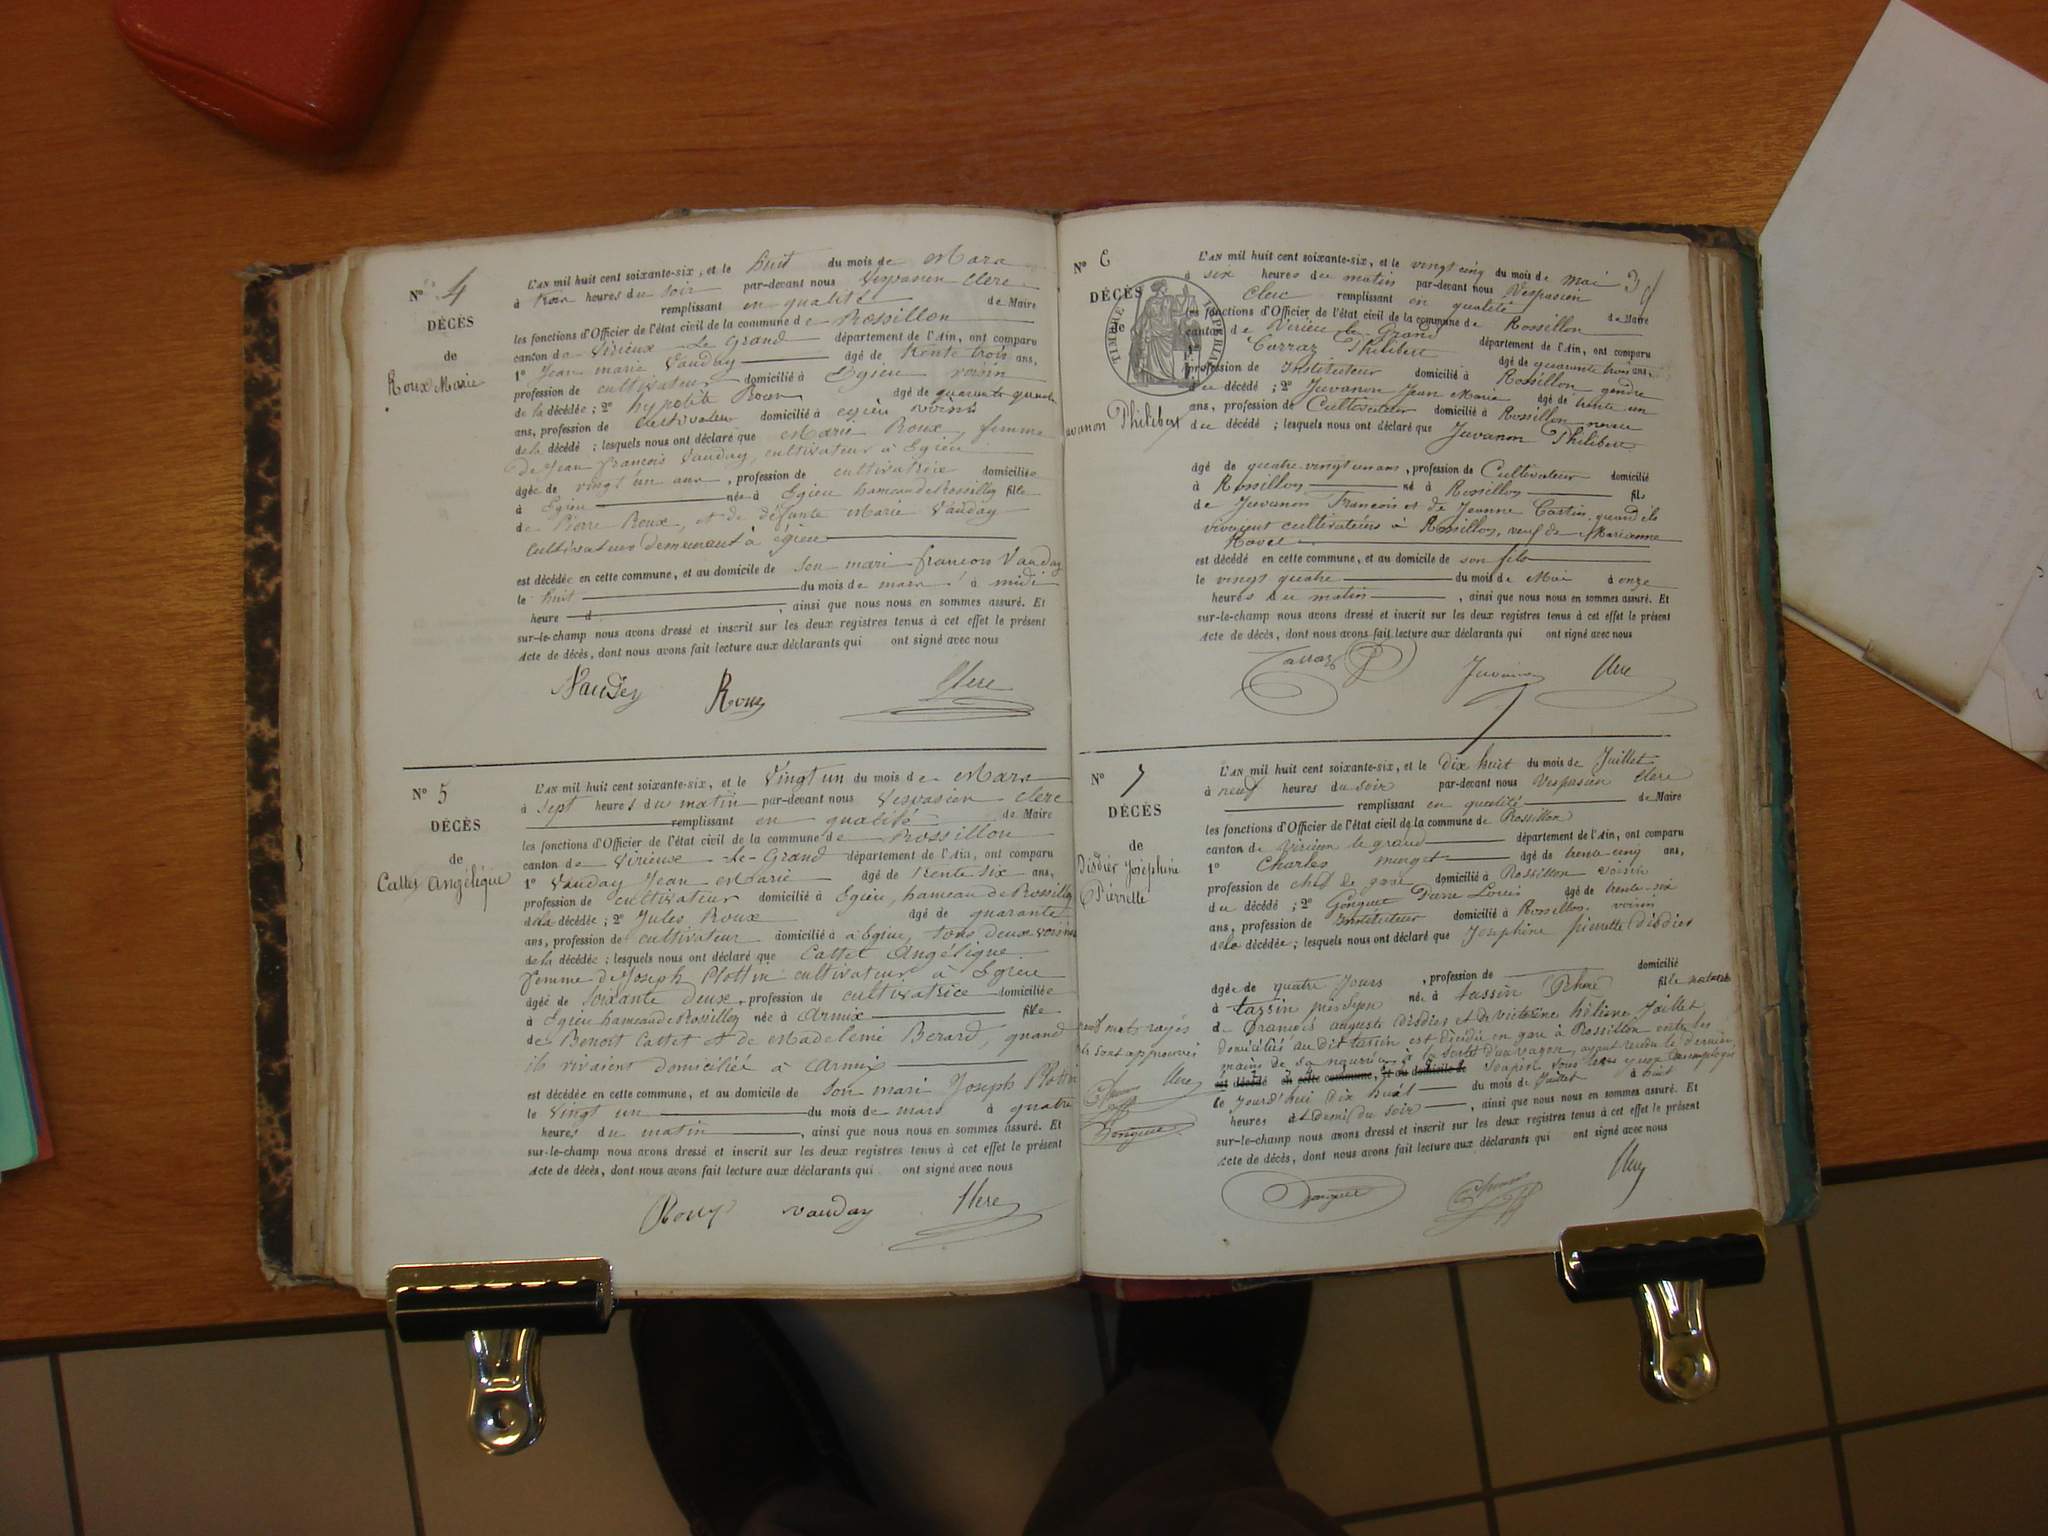 N° 4
DÉCÈS
de
Roux Marie
L'AN mil huit cent soixante-six, et le huit du mois de Mars
à trois heures du soir par-devant nous Vespasien Clerc
remplissant en qualité de Maire
les fonctions d'Officier de l'état civil de la commune de Rossillon
canton de Virieux-Le-Grand département de l'Ain, ont comparu
1° Jean marie Vauday âgé de trente trois ans,
profession de cultivateur domicilié à Egieu voisin
de la décédée; 2° hypolite Roux âgé de quarante
ans, profession de cultivateur domicilié à egieu voisin
de la décédé; lesquels nous ont déclaré que Marie Roux, femme
de Jean françois Vauday, cultivateur à Egieu
âgée de vingt un ans, profession de cultivatrice domiciliée
à Egieu née à Egieu hameau de Rossillon fille
de Pierre Roux, et de défunte Marie Vauday
cultivateurs demeurant à égieu
est décédée en cette commune, et au domicile de son mari françois Vauday
le huit du mois de mars à midi
heure d , ainsi que nous nous en sommes assuré. Et
sur-le-champ nous avons dressé et inscrit sur les deux registres tenus à cet effet le présent
Acte de décès, dont nous avons fait lecture aux déclarants qui ont signé avec nous
Vauday Roux Clerc
N° 5
DÉCÈS
de
Cattet Angélique
L'AN mil huit cent soixante-six, et le Vingt un du mois de Mars
à sept heures du matin par-devant nous Vespasien Clerc
remplissant en qualité de Maire
les fonctions d'Officier de l'état civil de la commune de Rossillon
canton de Virieux-Le-Grand département de l'Ain, ont comparu
1° Vauday Jean Marie âgé de trente six ans,
profession de cultivateur domicilié à Egieu, hameau de Rossillon
de la décédée; 2° Jules Roux âgé de quarante
ans, profession de cultivateur domicilié à à Egieu, tous deux voisins
de la décédée; lesquels nous ont déclaré que Cattet Angélique
femme de Joseph Plottin cultivateur à Egieu
âgée de soixante deux, profession de cultivatrice domiciliée
à Egieu hameau de Rossillon née à Armix fille
de Benoit Cattet et de Madeleine Berard, quand
ils vivaient domiciliés à Armix
est décédée en cette commune, et au domicile de son mari Joseph Plottin
le vingt un du mois de mars à quatre
heures du matin , ainsi que nous nous en sommes assuré. Et
sur-le-champ nous avons dressé et inscrit sur les deux registres tenus à cet effet le présent
Acte de décès, dont nous avons fait lecture aux déclarants qui ont signé avec nous
Roux vauday Clerc
N° 6
DÉCÈS
de
TIMBRE IMPERIAL
Juvanon Philibert
L'AN mil huit cent soixante-six, et le vingt cinq du mois de mai
à six heures du matin par-devant nous Vespasien
Clerc remplissant en qualité de Maire
les fonctions d'Officier de l'état civil de la commune de Rossillon
canton de Virieu le Grand département de l'Ain, ont comparu
1° Carraz Philibert âgé de quarante trois ans,
profession de Instituteur domicilié à Rossillon gendre
du décédé; 2° Juvanon Jean Marie âgé de trente un
ans, profession de Cultivateur domicilié à Rossillon neveu
du décédé; lesquels nous ont déclaré que Juvanon Philibert
âgé de quatre vingt un ans, profession de Cultivateur domicilié
à Rossillon né à Rossillon fils
de Juvanon François et de Jeanne Cartin quand ils
vivaient cultivateurs à Rossillon, veuf de Marianne
Ravet
est décédé en cette commune, et au domicile de son fils
le vingt quatre du mois de Mai à onze
heures du matin , ainsi que nous nous en sommes assuré. Et
sur-le-champ nous avons dressé et inscrit sur les deux registres tenus à cet effet le présent
Acte de décès, dont nous avons fait lecture aux déclarants qui ont signé avec nous
Carraz Juvanon Clerc
N° 7
DÉCÈS
de
Disdier Joséphine
Pierrette
L'AN mil huit cent soixante-six, et le dix huit du mois de Juillet
à neuf heures du soir par-devant nous Vespasien Clerc
remplissant en qualité de Maire
les fonctions d'Officier de l'état civil de la commune de Rossillon
canton de Virieu le grand département de l'Ain, ont comparu
1° Charles âgé de trente cinq ans,
profession de chef de gare domicilié à Rossillon voisin
du décédé; 2° Gonguet Louis âgé de trente-six
ans, profession de Instituteur domicilié à Rossillon voisin
de la décédée; lesquels nous ont déclaré que Josephine pierrette Disdier
âgée de quatre jours , profession de domicilié
à tassin près Lyon née à tassin Rhône fille naturelle
de françois auguste Disdier et de victorine hélène Juillet
domiciliés au dit tassin est décédée en gare à Rossillon entre les
mains de sa nourrice à la sortie d'un wagon, ayant rendu le dernier
est décédé en cette commune, et au domicile de soupir sous les yeux des employés
le jourd'hui dix huit du mois de Juillet à huit
heures et demi du soir , ainsi que nous nous en sommes assuré. Et
sur-le-champ nous avons dressé et inscrit sur les deux registres tenus à cet effet le présent
Acte de décès, dont nous avons fait lecture aux déclarants qui ont signé avec nous
mots rayés
sont approuvés
Clerc
Gonguet
Gonguet Clerc